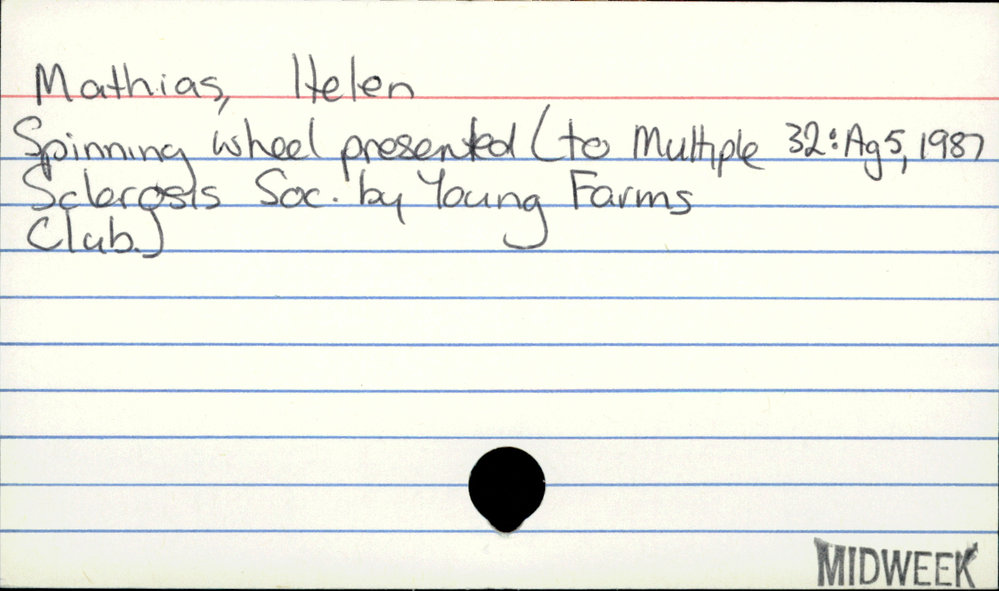 Mathias, Helen
Spinning wheel presented (to Multiple 32:Ag 5, 1987
Sclerosis Soc. by Young Farms
Club.)
MIDWEEK